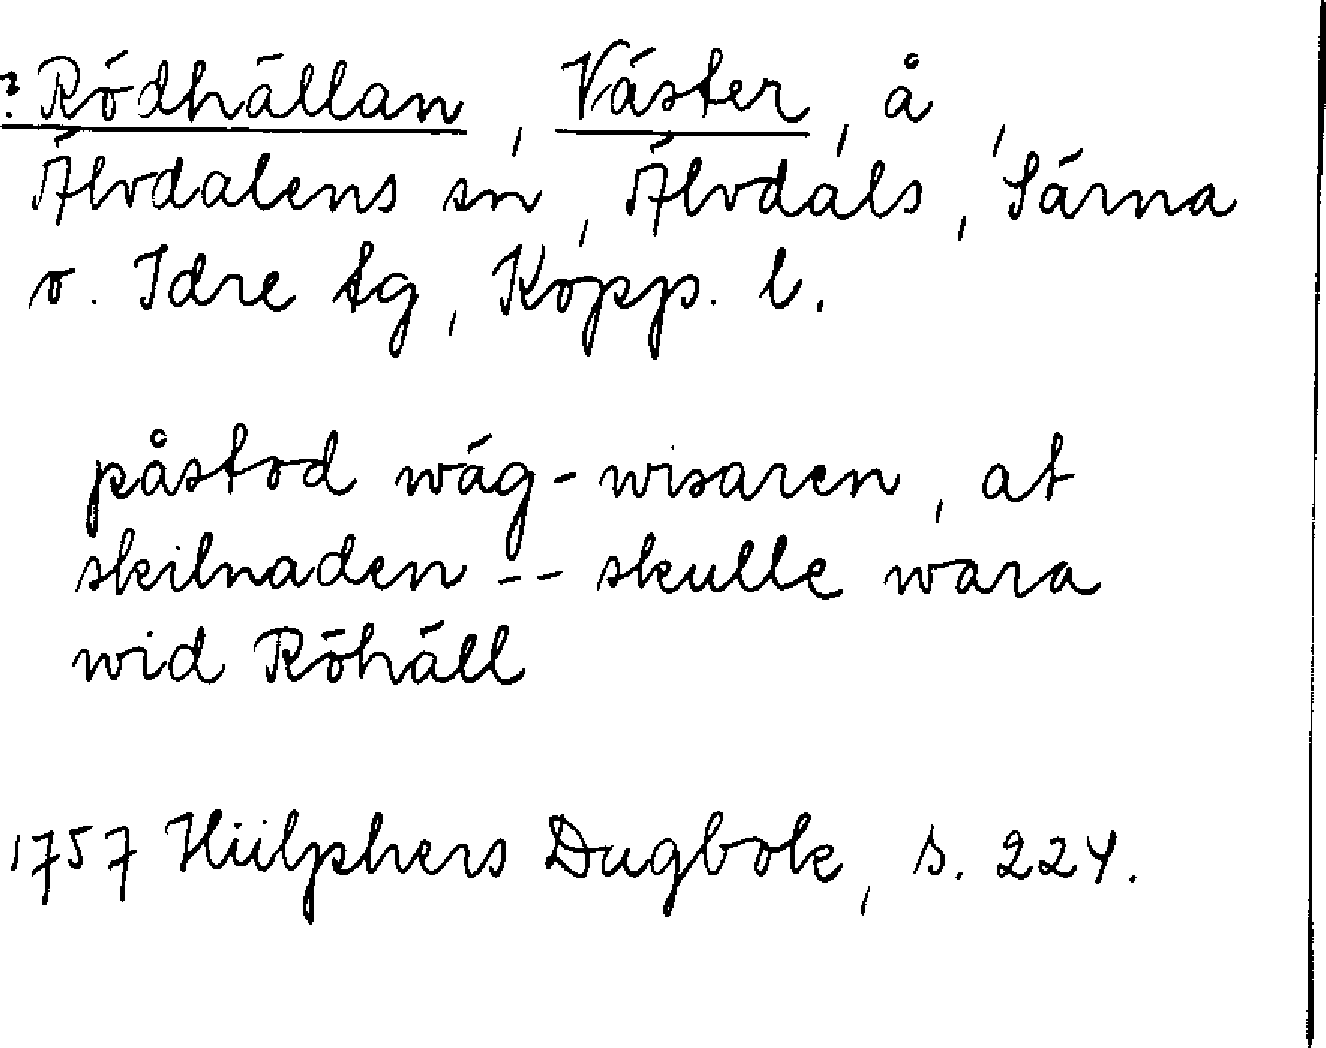 ? Rödhällan, Väster, å,
Älvdalens sn, Älvdals, Särna
o. Idre tg, Kopp. l.
påstod wäg-wisaren, at
skilnaden -- skulle wara
wid Röhäll
1757 Hülphers Dagbok, s. 224.